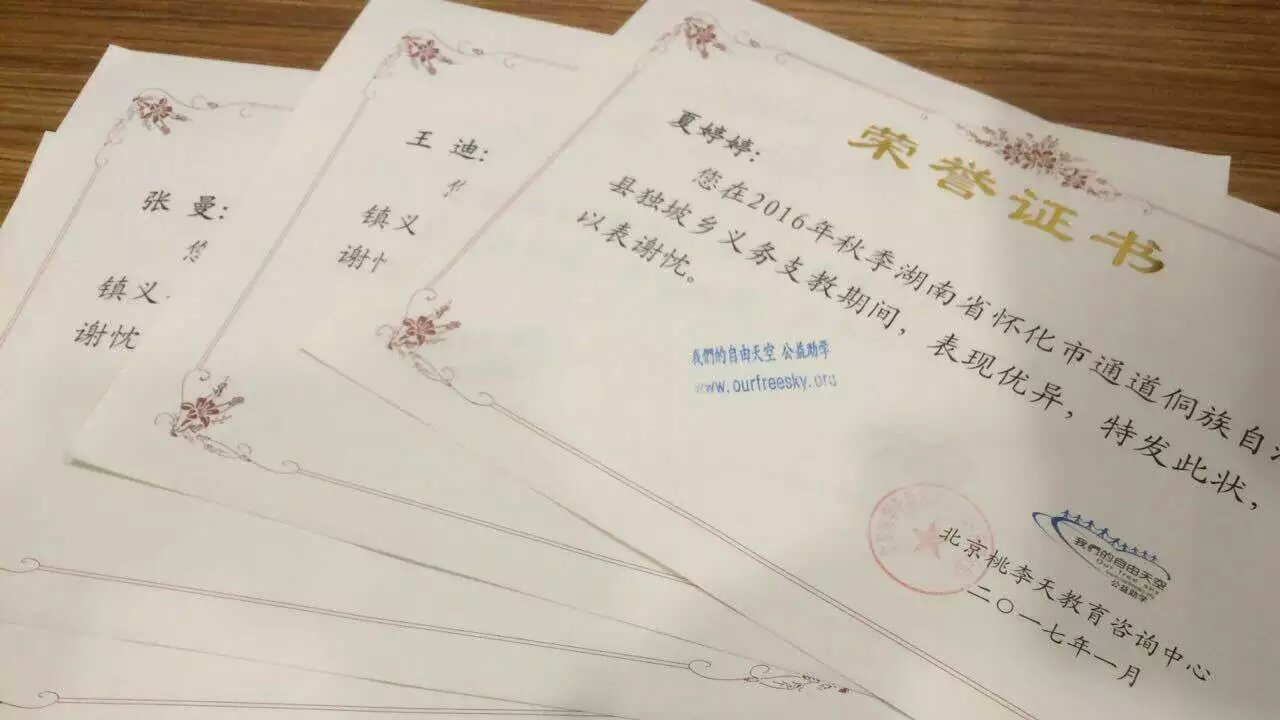 荣誉证书
夏婷婷：
您在2016年秋季湖南省怀化市通道侗族自治
县独坡乡义务支教期间，表现优异，特发此状，
以表谢忱。
我們的自由天空 公益助学
www.ourfreesky.org
我們的自由天空
公益助学
北京桃李天教育咨询中心
二〇一七年一月
王 迪：
镇义
谢忱
张 曼：
您
镇义
谢忱